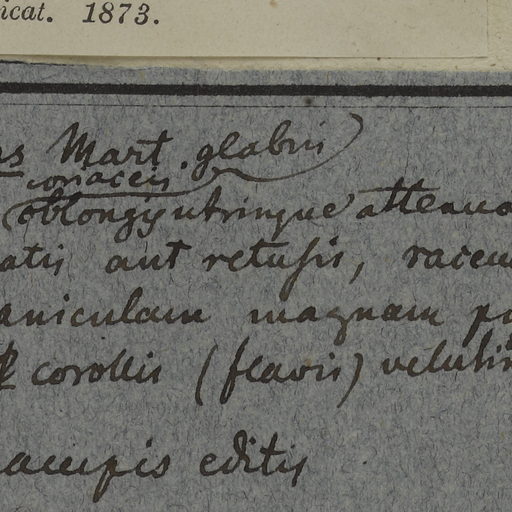 icat. 1873.
as Mart. glabris
coriaceis
oblongis utrinque attenua
atis aut retusis, racem
aniculam magnam p
corollis (flavis) veluti
campis editis